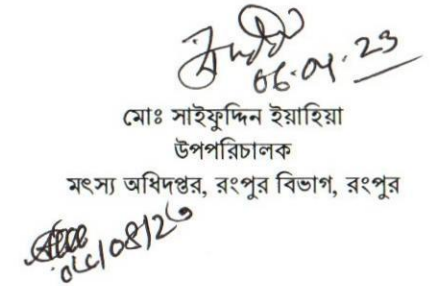 06.04.23
মোঃ সাইফুদ্দিন ইয়াহিয়া
উপপরিচালক
মৎস্য অধিদপ্তর, রংপুর বিভাগ, রংপুর